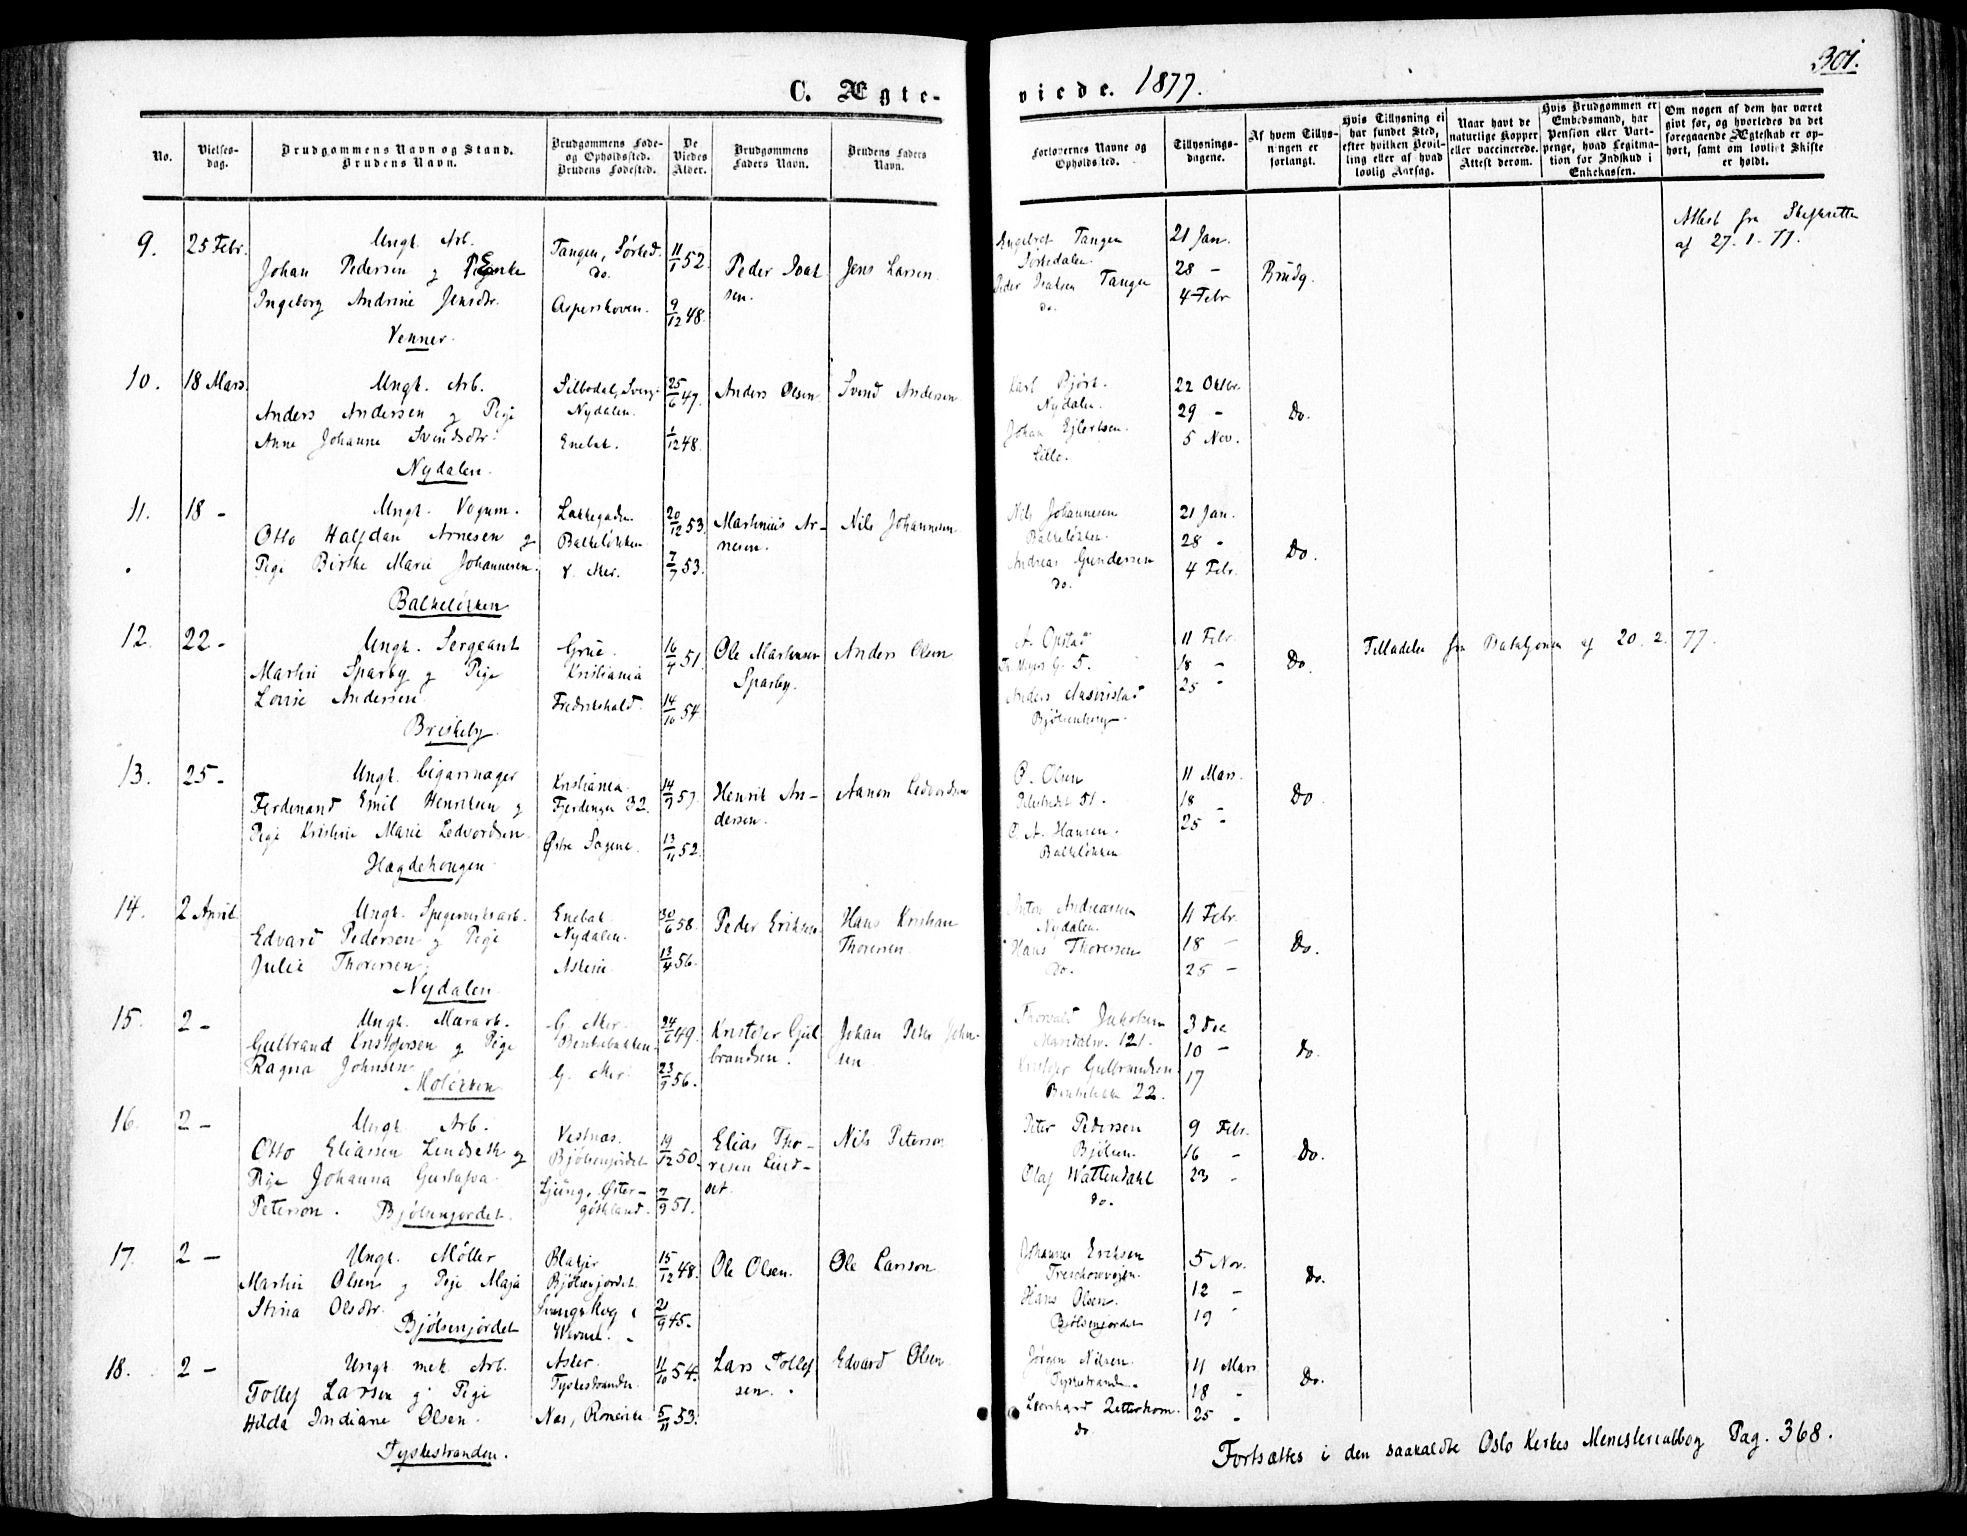 301.
C. Ægte-
viede. 1877.
No.
Vielses-
dag.
Brudgommens Navn og Stand.
Brudens Navn.
Brudgommens Føde-
og Opholdssted.
Brudens Fødested.
De
Viedes
Alder.
Brudgommens
Faders Navn.
Brudens Faders
Navn.
Forlovernes Navne og
Opholdssted.
Tillysnings-
dagene.
Af hvem Tillys-
ningen er
forlangt.
Hvis Tillysning ei
har fundet Sted,
efter hvilken Bevil-
ling eller af hvad
lovlig Aarsag.
Naar havt de
naturlige Kopper
eller vaccinerede.
Attest derom.
Hvis Brudgommen er
Embedsmand, har
Pension eller Vart-
penge, hvad Legitma-
tion for Indskud i
Enkekassen.
Om nogen af dem har været
givt før, og hvorledes da det
foregaaende Ægteskab er op-
hørt, samt om lovligt Skifte
er holdt.
9. 25 Febr.
Ungk. Arb.
Johan Pedersen og Enke
Ingeborg Andrine Jensdtr.
Venner.
Tangen, Sørked.
do.
Asperskoven.
11/1 52.
9/12 48.
Peder Isak
sen.
Jens Larsen.
Engebret Tangen
Sørkedalen.
Peder Isaksen Tangen
do.
21 Jan.
28 -
4 Febr
Brudg.
Attest fra Skifteretten
af 27.1.77.
10. 18 Mars.
Ungk. Arb.
Anders Andersen og Pige
Anne Johanne Svendsdtr.
Nydalen.
Silbodal, Sverg.
Nydalen.
Enebak.
25/6 47.
1/12 48.
Anders Olsen
Svend Andersen
Karl
Nydalen.
Johan Ejlertsen.
Lillo.
22 Oktbr.
29 -
5 Nov.
Do.
11. 18 -
Ungk. Vognm.
Otto Halfdan Arnesen og
Pige Birthe Marie Johannesen.
Balkeløkken
Lakkegaden.
Balkeløkken
V. Aker.
20/12 53.
7/7 53.
Martinius Ar-
nesen.
Nils Johannesen
Nils Johannesen
Balkeløkken.
Andreas Gundersen
do.
21 Jan.
28 -
4 Febr.
Do.
12. 22 -
Ungk. Sergeant
Martin Sparby og Pige
Lovise Andersen
Briskeby.
Grue.
Kristiania
Fredrikshald.
16/4 51.
14/10 54.
Ole Martinsen
Sparby.
Anders Olsen
A. Opstad
G. 5.
Anders
Bjølsenberg.
11 Febr.
18 -
25 -
Do
Tilladelse fra Bataljonen af 20.2.77.
13. 25 -
Ungk. Cigarmager
Ferdinand Emil Henriksen og
Pige Kristine Marie Ledvordsen.
Hægdehougen
Kristiania.
Fjerdingen 32.
Østre Sogene.
14/9 57.
13/11 52.
Henrik An-
dersen.
Aanon Ledvordsen
O. Olsen
Pilestredet 51.
A. Hansen.
Balkeløkken
11 Mars.
18 -
25 -
Do
14. 2 April
Ungk. Spigerverksarb.
Edvard Pedersen og Pige
Julie Thoresen.
Nydalen.
Enebak.
Nydalen.
Askim.
30/6 58.
13/4 56.
Peder Eriksen
Hans Kristian
Thoresen.
Anton Andreassen
Nydalen.
Hans Thoresen
do.
11 Febr.
18 -
25 -
Do.
15. 2 -
Ungk. Murarb.
Gulbrand Kristofersen og Pige
Ragna Johnsen
Moløkken
G. Aker.
Bentsebakken.
G. Aker.
24/6 49.
23/9 56.
Kristofer Gul
brandsen.
Johan Peter John-
sen
Thorvald Jakobsen
Maridalsv. 121.
Kristofer Gulbrandsen
22.
3 Dec
10 -
17
Do.
16. 2 -
Ungk. Arb.
Otto Eliassen Lindseth og
Pige Johanna Gustafva
Peterson. Bjølsenjordet.
Vestnæs.
Bjølsenjordet
Ljung, Øster-
gøthland.
19/12 50.
7/9 51.
Elias Tho-
resen Lind-
set.
Nils Peterson
Peter Pedersen
Bjølsen.
Olaf Wattendahl
do.
9 Febr.
16 -
23 -
Do.
17. 2 -
Ungk. Møller
Martin Olsen og Pige Maja
Stina Olsdtr.
Bjølsenjordet
Blakjer
Bjølsenjordet.
Svangskog i
15/12 48.
21/9 45.
Ole Olsen.
Ole Larson
Johannes Eriksen
Treschowvejen.
Hans Olsen.
Bjølsenjordet
5 Nov.
12 -
19 -
Do.
18. 2 -
Ungk. mek. Arb.
Tollef Larsen og Pige
Hilda Indiane Olsen.
Tyskestranden.
Asker.
Tyskestranden
Næs, Romerike.
11/10 54.
5/11 53.
Lars Tollef
sen.
Edvard Olsen
Jørgen Nilsen.
Tyskestrand.
Leonhard Zetterstrøm.
do.
11 Mars
18 -
25 -
Do.
Fortsættes i den saakaldte Oslo Kirkes Ministerialbog Pag. 368.